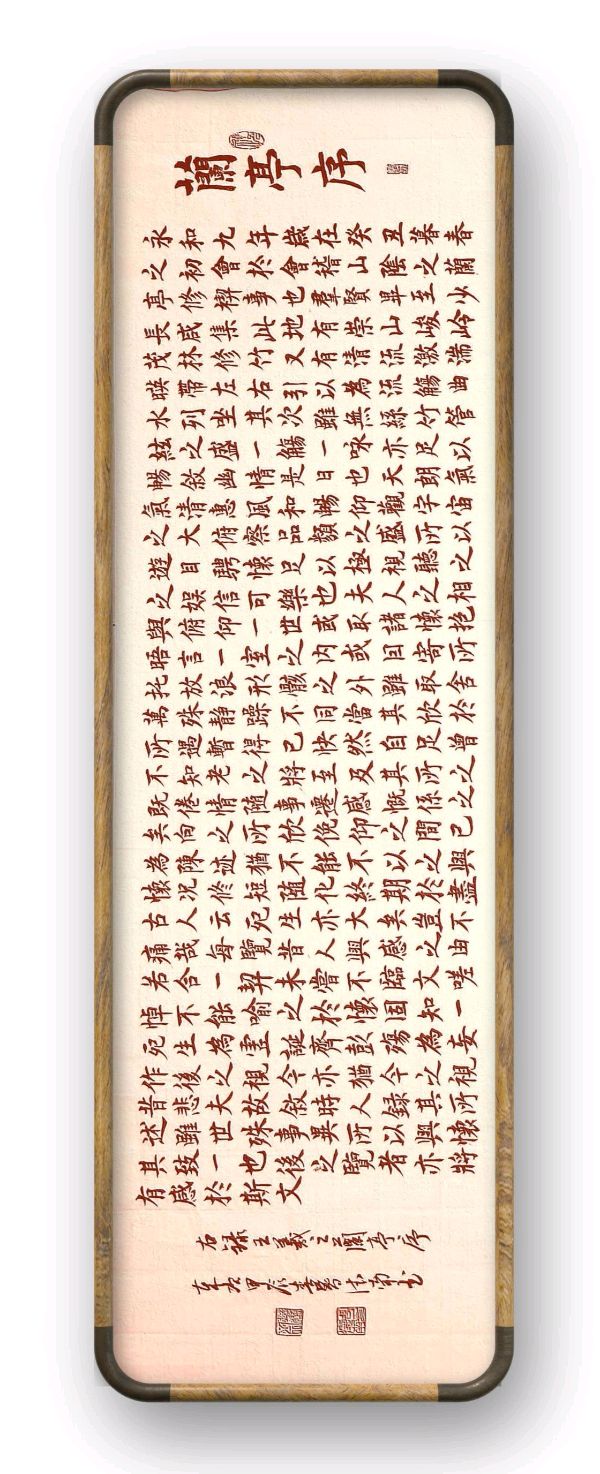 蘭亭序
永和九年歲在癸丑暮春
之初會於會稽山陰之蘭
亭修禊事也羣賢畢至少
長咸集此地有崇山峻岭
茂林修竹又有清流激湍
暎帶左右引以為流觴曲
水列坐其次雖無絲竹管
絃之盛一觴一咏亦足以
暢敘幽情是日也天朗
氣清惠風和暢仰觀宇宙
之大俯察品類之盛所以
遊目騁懷足以極視聽
之娛信可樂也夫人之相
與俯仰一世或取諸懷抱
晤言一室之內或因寄所
托放浪形骸之外雖
萬殊靜躁不同當其欣於
所遇暫得於己快然自足曾
不知老之將至及其所之
既倦情隨事遷感慨係之
矣向之所欣俛仰之間已
為陳迹猶不能不以之興
懷況修短隨化終期於盡
古人云死生亦大矣豈不
痛哉每覽昔人興感之由
若合一契未嘗不臨文嗟
悼不能喻之於懷固知一
死生為虛誕齊彭殤為妄
作後之視今亦猶今之視
昔悲夫故敘時人錄其所
述雖世殊事異所以興懷
其致一也後之覽者亦將
有感於斯文
右錄王羲之蘭亭序